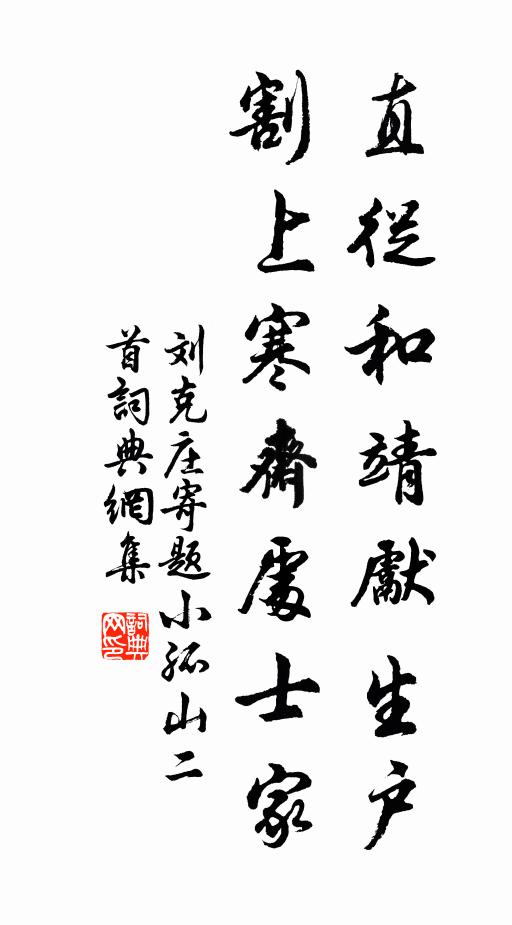 直從和靖獻生户
割上寒齋處士家
刘克庄寄题小孤山二
首詞典網集
詞典网印